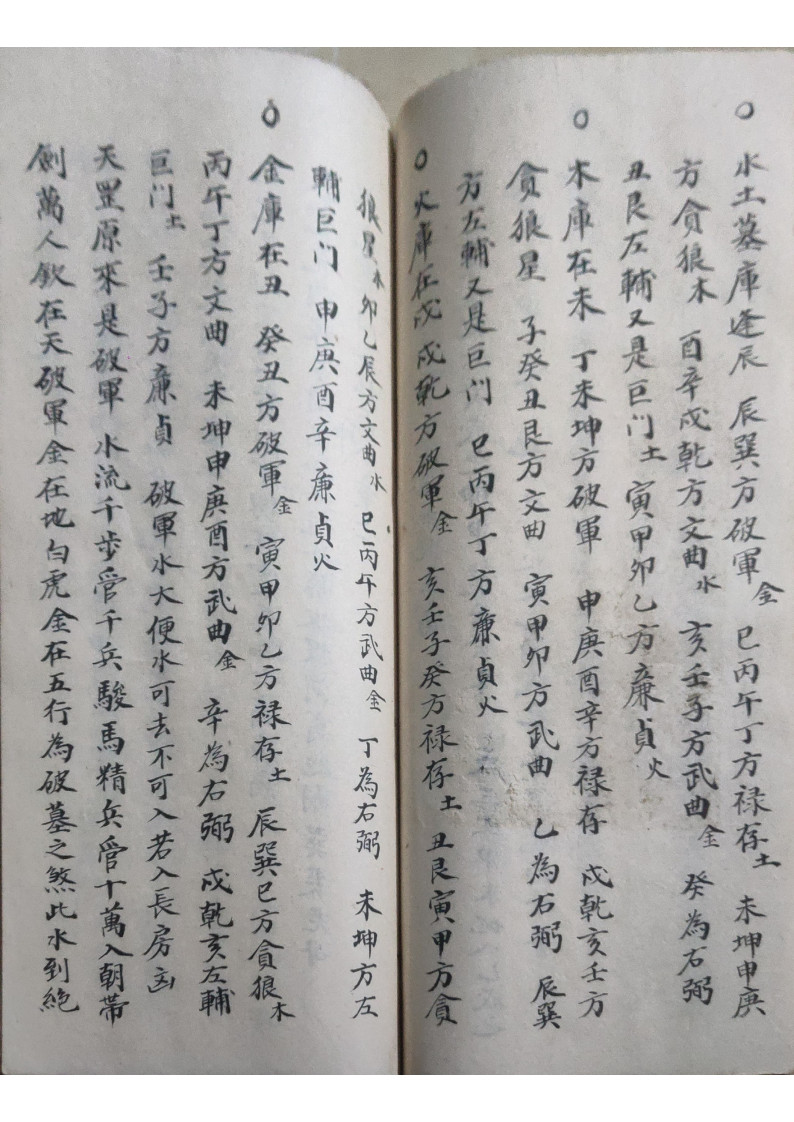 ○ 水土墓庫逢辰 辰巽方破軍金 巳丙午丁方禄存土 未坤申庚
方貪狼木 酉辛戌乾方文曲水 亥壬子方武曲金 癸為右弼
丑艮左輔又是巨门土 寅甲卯乙方廉貞火
○ 木庫在未 丁未坤方破軍 申庚酉辛方禄存 戌乾亥壬方
貪狼星 子癸丑艮方文曲 寅甲卯方武曲 乙為右弼 辰巽
方左輔又是巨门 巳丙午丁方廉貞火
○ 火庫在戌 戌乾方破軍金 亥壬子癸方禄存土 丑艮寅甲方貪
狼星木 卯乙辰方文曲水 巳丙午方武曲金 丁為右弼 未坤方左
輔巨门 申庚酉辛廉貞火
○ 金庫在丑 癸丑方破軍金 寅甲卯乙方禄存土 辰巽巳方貪狼木
丙午丁方文曲 未坤申庚酉方武曲金 辛為右弼 戌乾亥左輔
巨门土 壬子方廉貞 破軍水大便水可去不可入若入長房凶
天罡原來是破軍 水流千步管千兵駿馬精兵管十萬入朝帯
劍萬人欽在天破軍金在地白虎金在五行為破墓之煞此水到絶